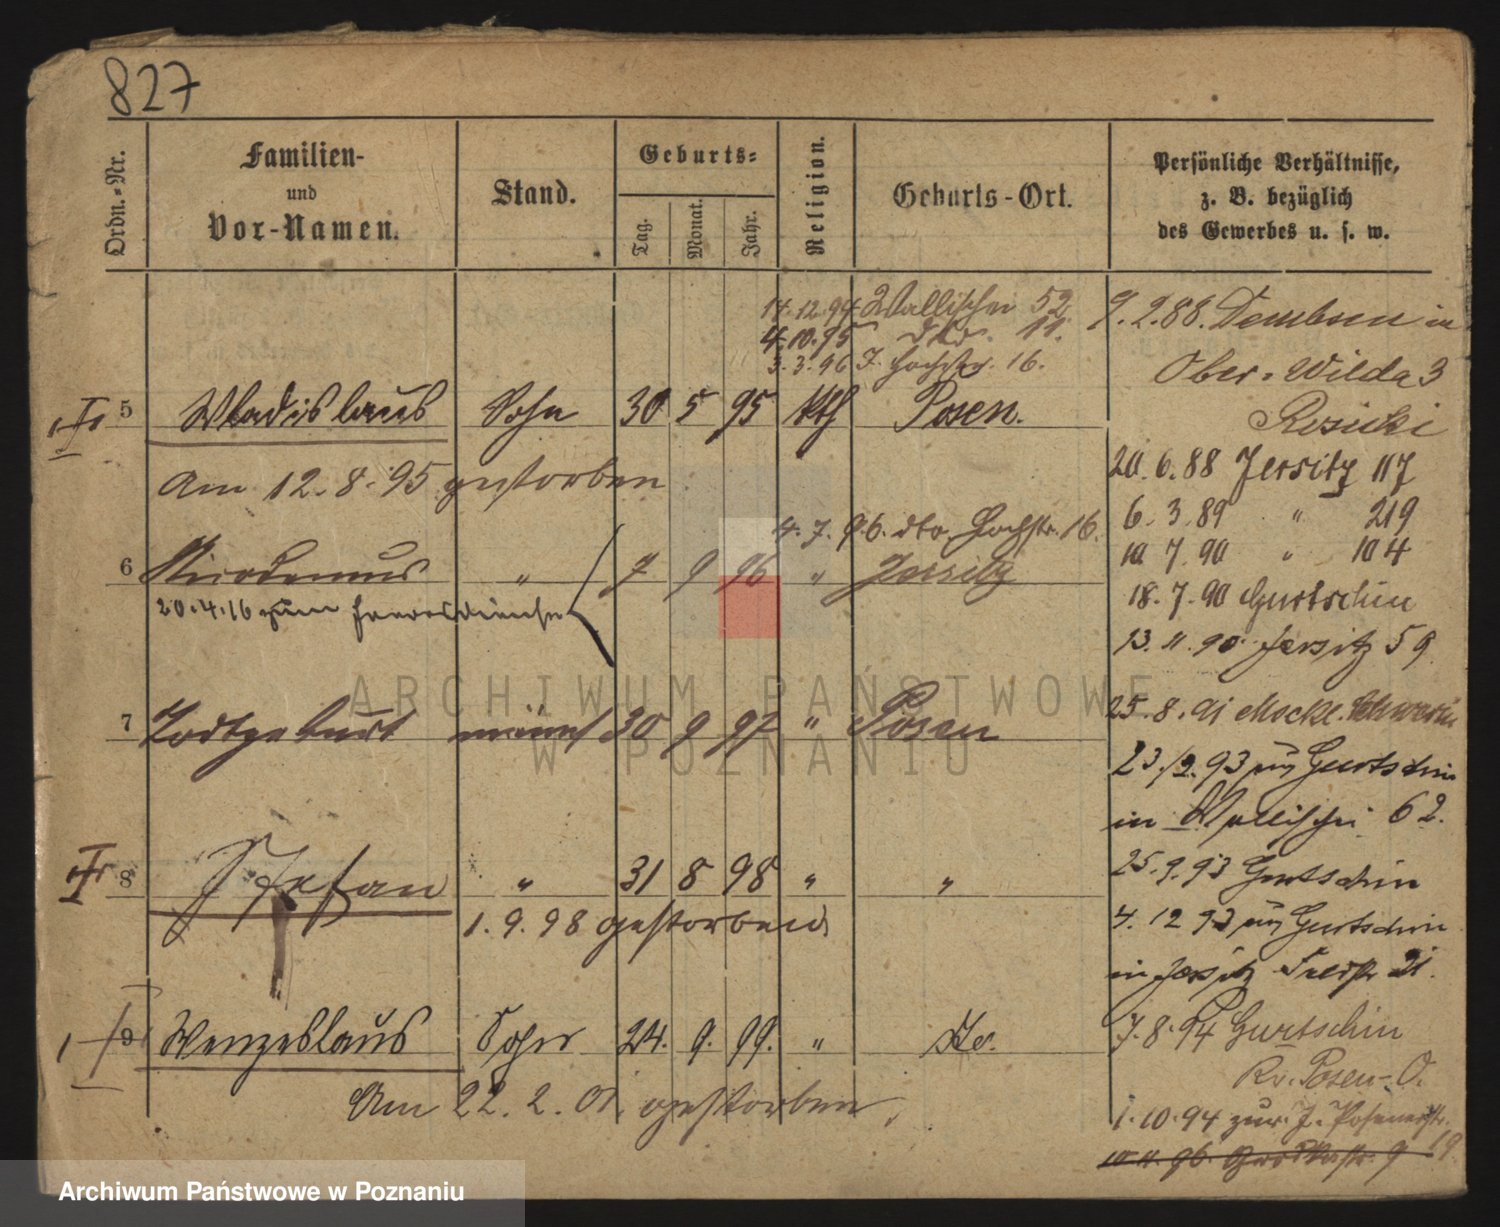 827
Ordn.-Nr.
Familien-
und
Vor-Namen.
Stand.
Geburts-
Tag.
Monat.
Jahr.
Religion.
Geburts-Ort.
Persönliche Verhältnisse,
z. B. bezüglich
des Gewerbes u. s. w.
14.12.94 Wallischei 52
4.10.95 11.
3.3.96 J. Hochstr. 16.
5 Wladislaus Sohn 30 5 95 kth Posen.
Am 12.8.95 gestorben
4.7.96. dto. Hochstr. 16.
6 Nicodemus " 7 9 96 " Jersitz
20.4.16 zum Heeresdienste
7 Todtgeburt männl 30 9 97 " Posen
8 Stefan " 31 8 98 " "
1.9.98 gestorben
9 Wenzeslaus Sohn 24. 9. 99. "
Am 22.2.01. gestorben.
9.2.88. Dembsen in
Ober-Wilda 3
Rosicki
20.6.88 Jersitz 117
6.3.89 " 219
10.7.90 " 104
18.7.90 Gurtschin
13.11.90. Jersitz 59
25.8.91 Meckl. Schwerin
23./2.93 Gurtschin
in Wallischei 62.
25.9.93 Gurtschin
4.12 93 Gurtschin
in Jersitz 21.
7.8.94 Gurtschin
Kr. Posen-O.
1.10.94 zur. J. Posenerstr.
19
10.11.96. 9
ARCHIWUM PAŃSTWOWE
W POZNANIU
Archiwum Państwowe w Poznaniu